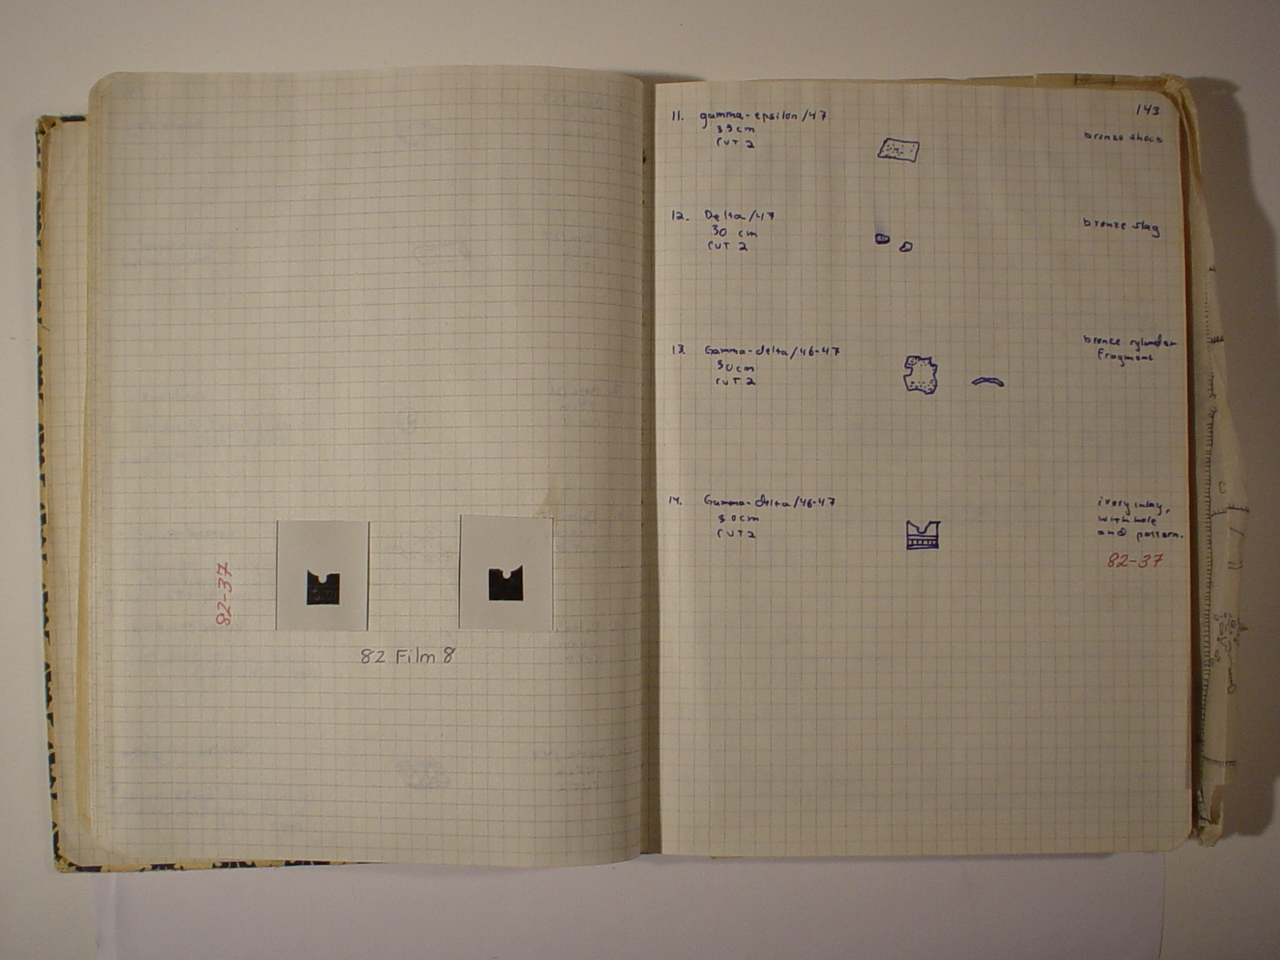 82-37
82 Film 8
143
11. gamma-epsilon/47
39cm
CUT 2
bronze sheet
12. Delta/47
30 cm
CUT 2
bronze slag
13. Gamma-delta/46-47
30cm
CUT 2
bronze cylinder
fragment
14. Gamma-delta/46-47
30cm
CUT 2
ivory inlay,
with hole
and pattern.
82-37